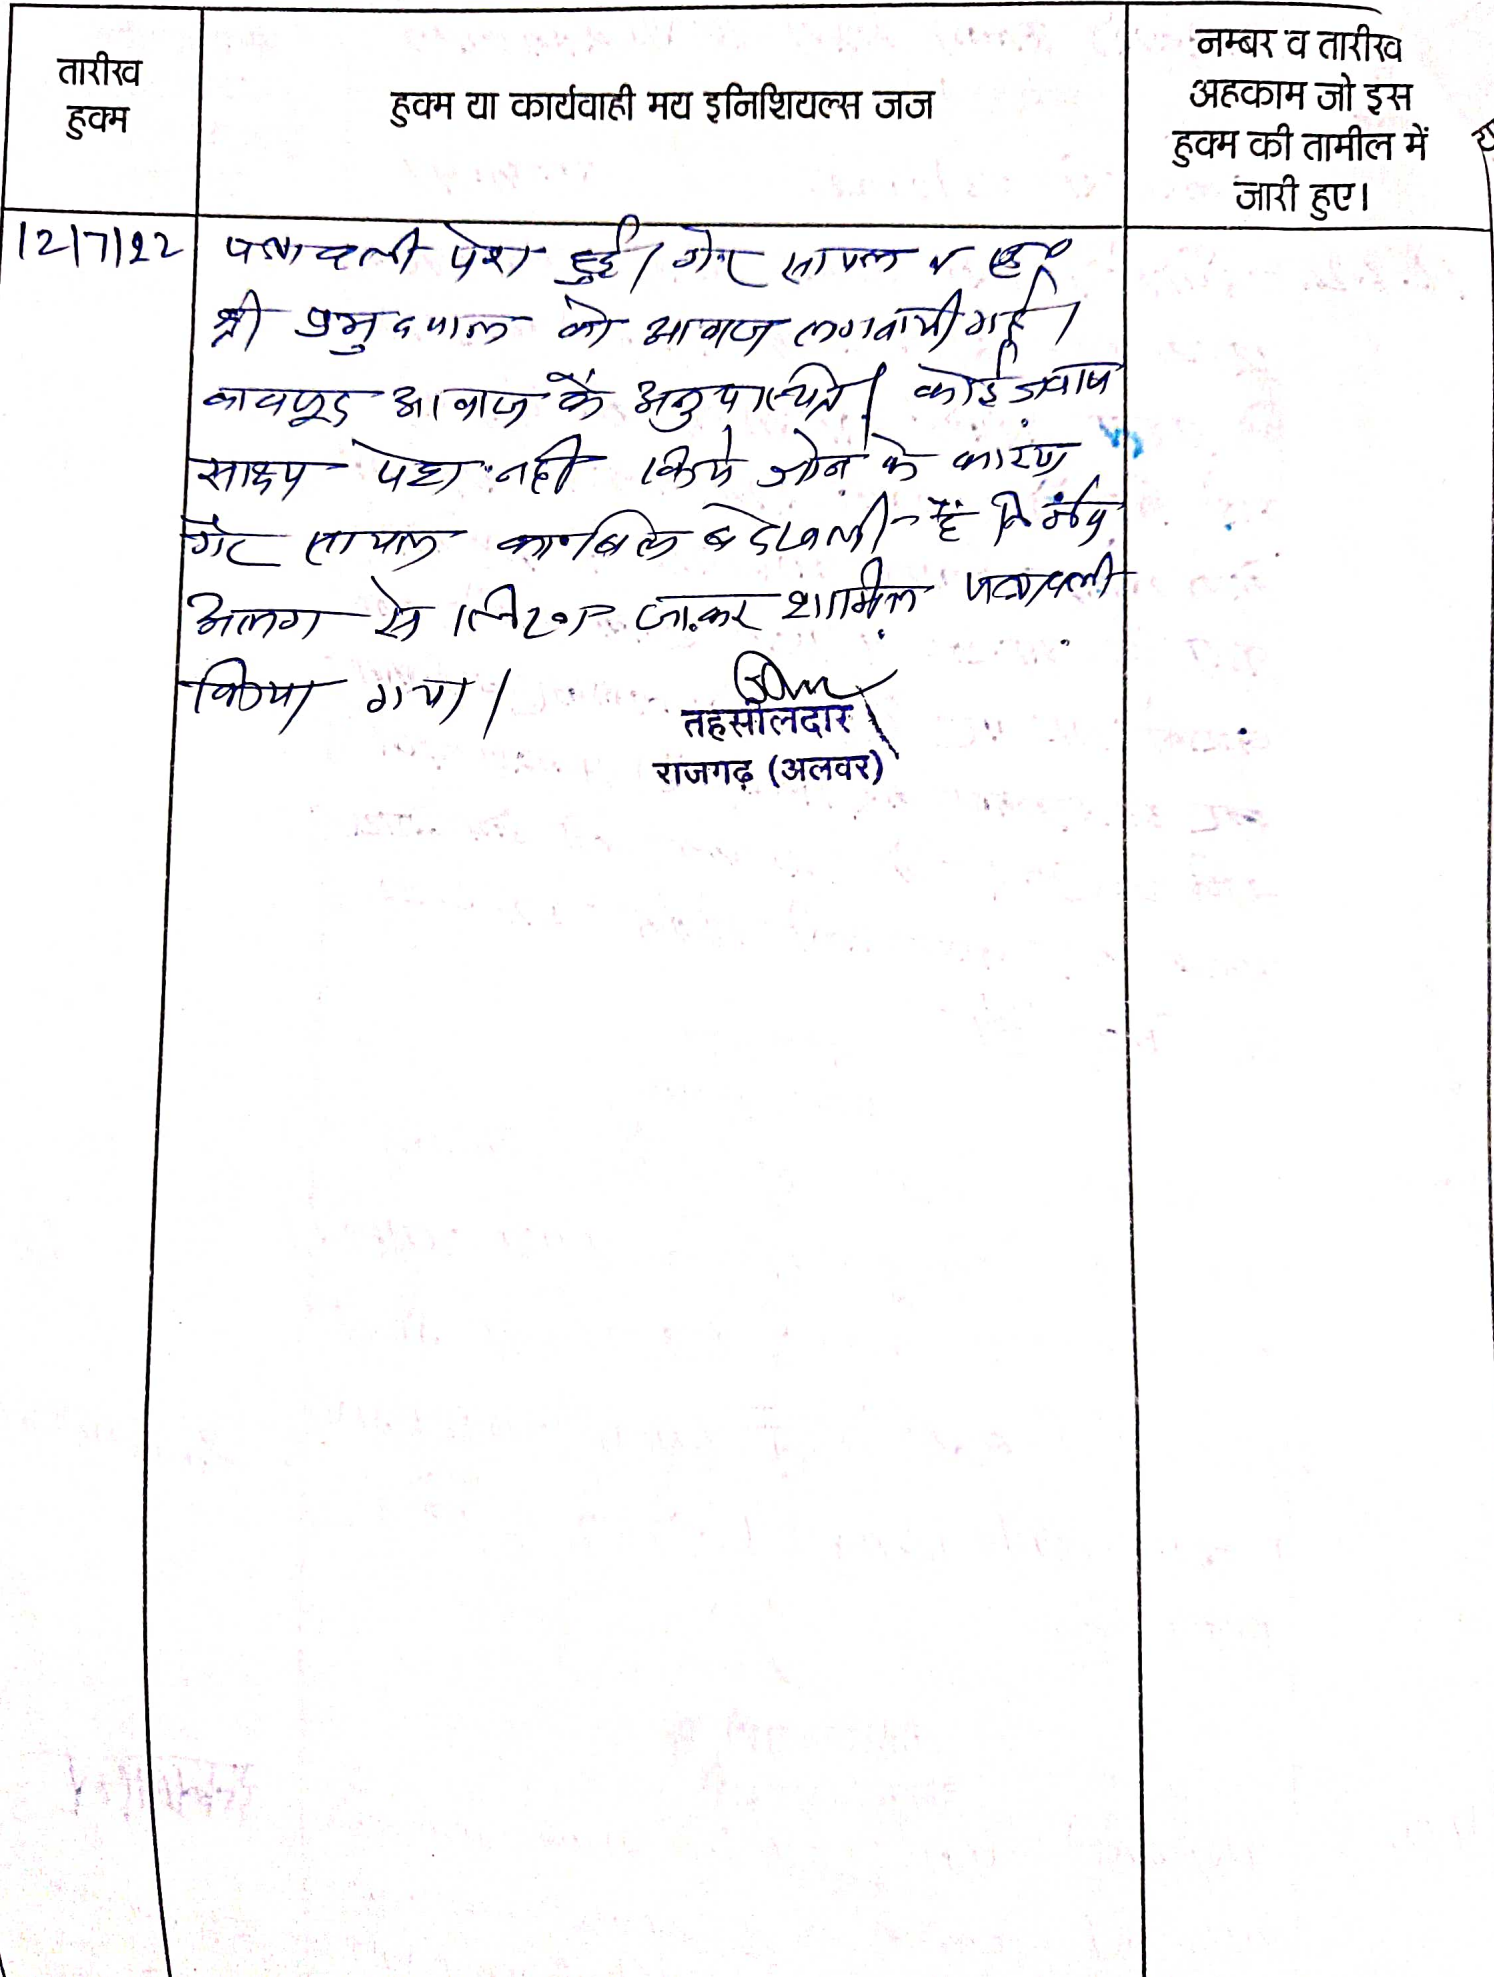 तारीख
हुक्म
हुक्म या कार्यवाही मय इनिशियल्स जज
नम्बर व तारीख
अहकाम जो इस
हुक्म की तामील में
जारी हुए।
12/7/22
पत्रावली पेश हुई। गैर सायल व
श्री प्रभुदयाल को आवाज लगवायी गई।
बावजूद आवाज के अनुपस्थित। कोई जवाब
साक्ष्य पेश नही किये जाने के कारण
गैर सायल काबिल बेदखली है निर्णय
अलग से लिखा जाकर शामिल पत्रावली
किया गया।
तहसीलदार
राजगढ़ (अलवर)